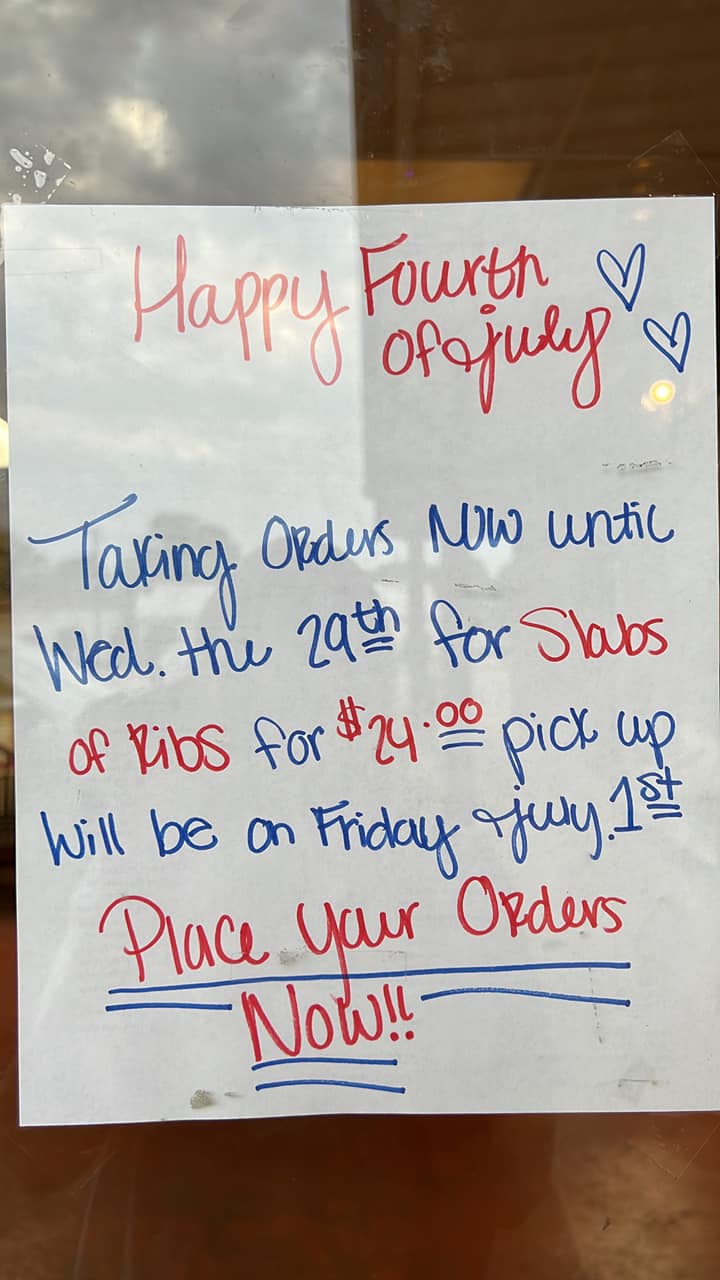 Happy Fourth
of july
Taking Orders Now until
Wed. the 29th for Slabs
of Ribs for $24.00 pick up
Will be on Friday july.1st
Place your Orders
Now!!